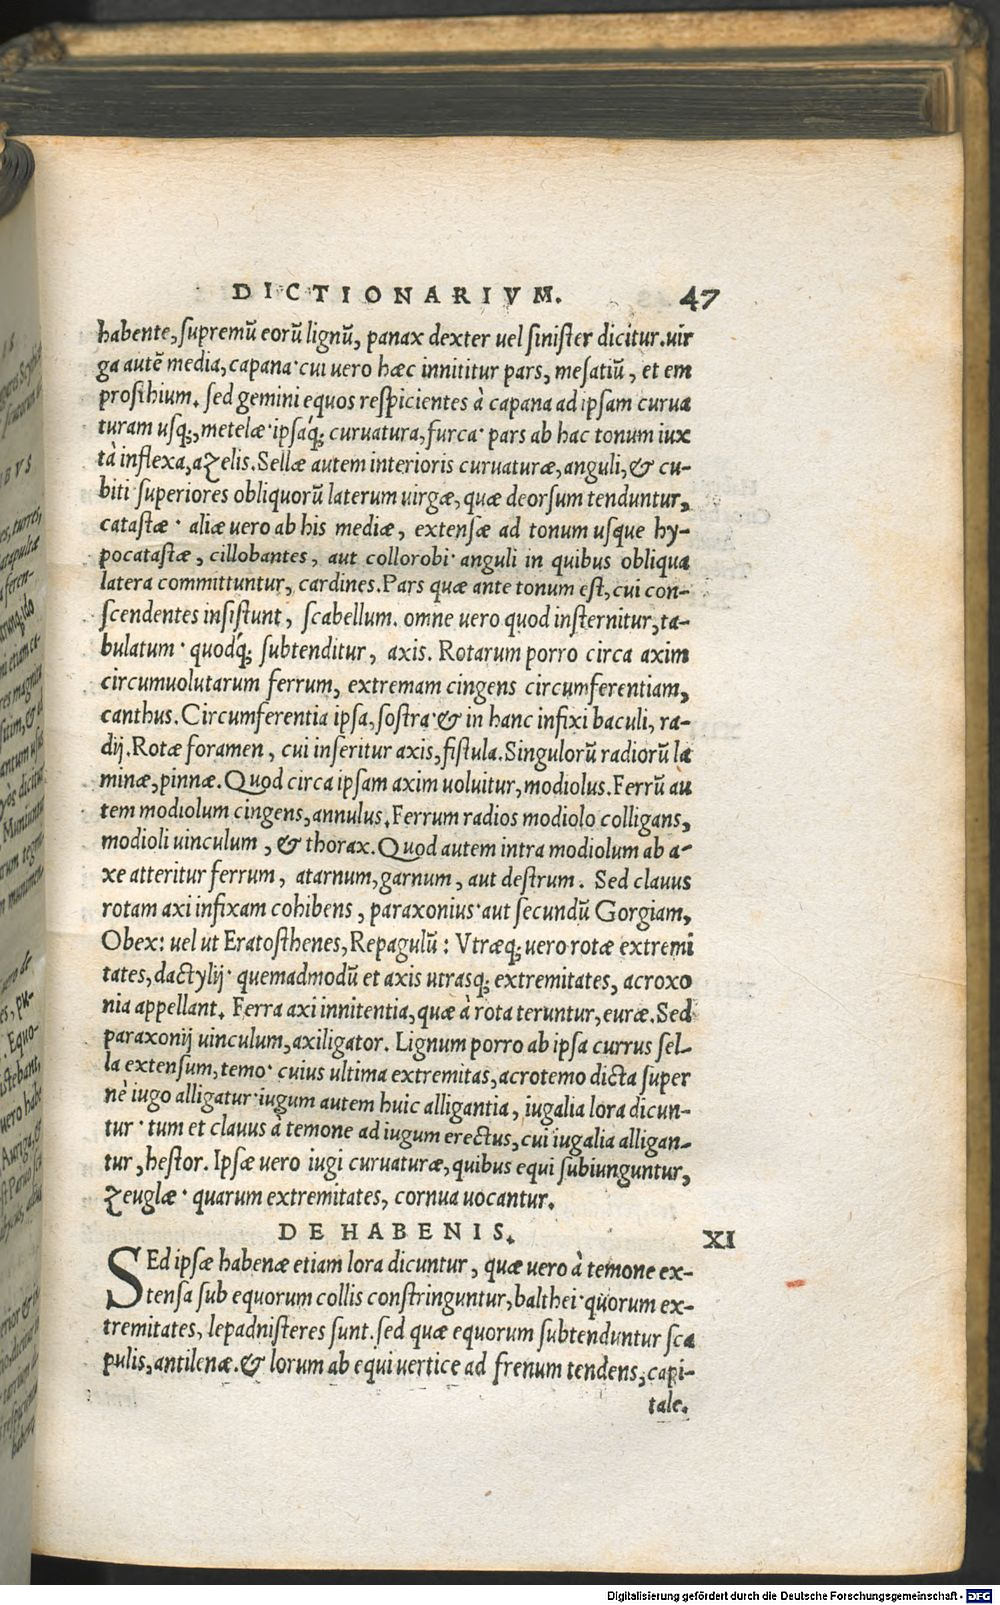 DICTIONARIVM. 47
habente, supremũ eorũ lignũ, panax dexter uel sinister dicitur. uir
ga autẽ media, capana· cui uero hæc innititur pars, mesatiũ, et em
prosthium. sed gemini equos respicientes à capana ad ipsam curua
turam usq;, metelæ· ipsaq́; curuatura, furca· pars ab hac tonum iux
tà inflexa, azelis. Sellæ autem interioris curuaturæ, anguli, & cu-
biti superiores obliquorũ laterum uirgæ, quæ deorsum tenduntur,
catastæ· aliæ uero ab his mediæ, extensæ ad tonum usque hy-
pocatastæ, cillobantes, aut collorobi· anguli in quibus obliqua
latera committuntur, cardines. Pars quæ ante tonum est, cui con-
scendentes insistunt, scabellum. omne uero quod insternitur, ta-
bulatum· quodq́; subtenditur, axis. Rotarum porro circa axim
circumuolutarum ferrum, extremam cingens circumferentiam,
canthus. Circumferentia ipsa, sostra· & in hanc infixi baculi, ra-
dij. Rotæ foramen, cui inseritur axis, fistula. Singulorũ radiorũ la
minæ, pinnæ. Quod circa ipsam axim uoluitur, modiolus. Ferrũ au
tem modiolum cingens, annulus. Ferrum radios modiolo colligans,
modioli uinculum, & thorax. Quod autem intra modiolum ab a-
xe atteritur ferrum, atarnum, garnum, aut destrum. Sed clauus
rotam axi infixam cohibens, paraxonius· aut secundũ Gorgiam,
Obex: uel ut Eratosthenes, Repagulũ: Vtræq; uero rotæ extremi
tates, dactylij· quemadmodũ et axis utrasq; extremitates, acroxo
nia appellant. Ferra axi innitentia, quæ à rota teruntur, euræ. Sed
paraxonij uinculum, axiligator. Lignum porro ab ipsa currus sel-
la extensum, temo· cuius ultima extremitas, acrotemo dicta super
nè iugo alligatur· iugum autem huic alligantia, iugalia lora dicun-
tur· tum et clauus à temone ad iugum erectus, cui iugalia alligan-
tur, hestor. Ipsæ uero iugi curuaturæ, quibus equi subiunguntur,
zeuglæ· quarum extremitates, cornua uocantur.
DE HABENIS. XI
SEd ipsæ habenæ etiam lora dicuntur, quæ uero à temone ex-
tensa sub equorum collis constringuntur, balthei· quorum ex-
tremitates, lepadnisteres sunt. sed quæ equorum subtenduntur sca
pulis, antilenæ. & lorum ab equi uertice ad frenum tendens, capi-
tale.
Digitalisierung gefördert durch die Deutsche Forschungsgemeinschaft - DFG